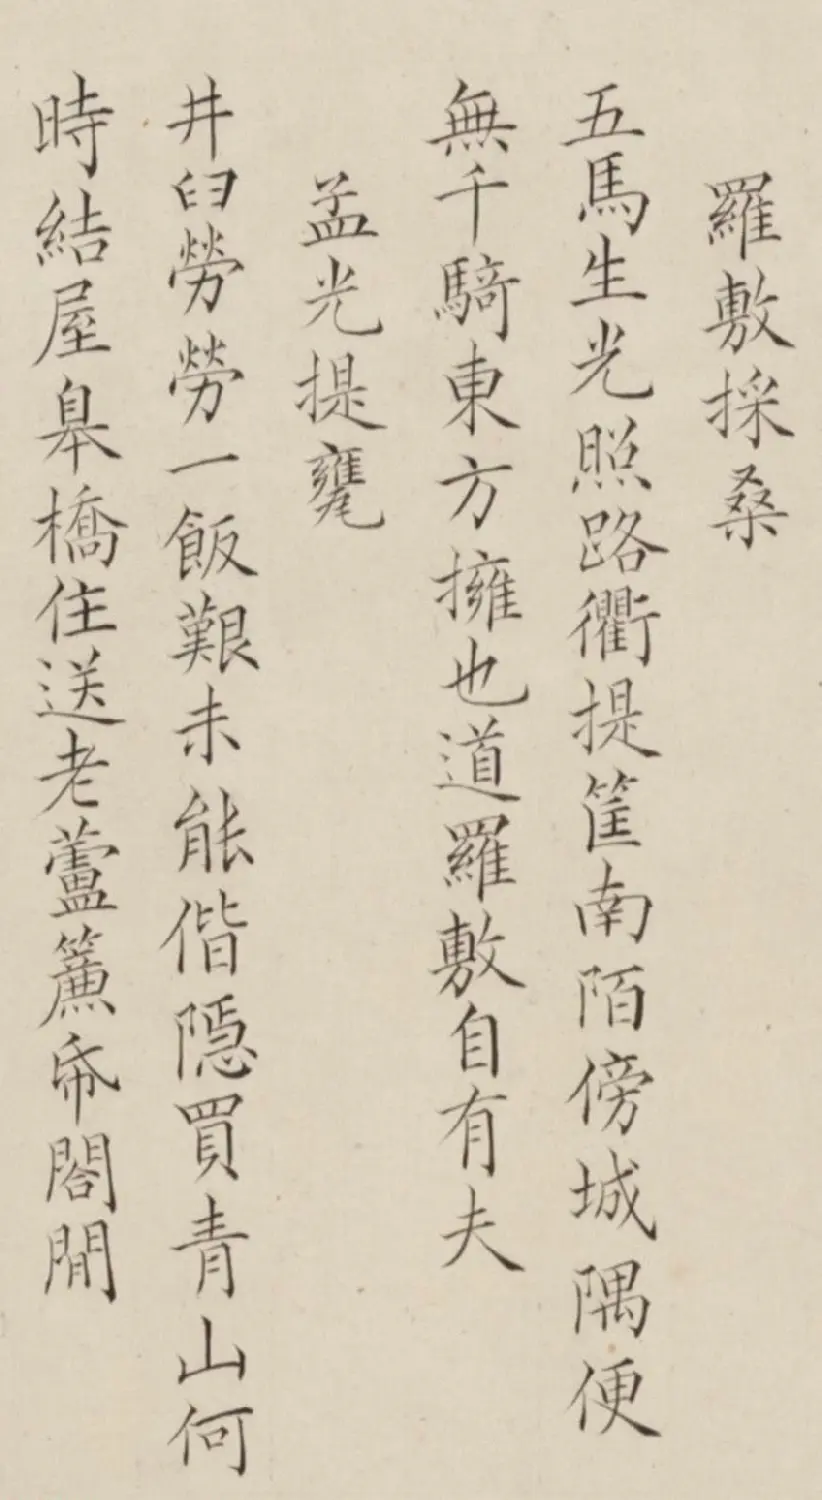 羅敷採桑
五馬生光照路衢提筐南陌傍城隅便
無千騎東方擁也道羅敷自有夫
孟光提甕
井臼勞勞一飯艱未能偕隱買青山何
時結屋皋橋住送老蘆簾帋閤間